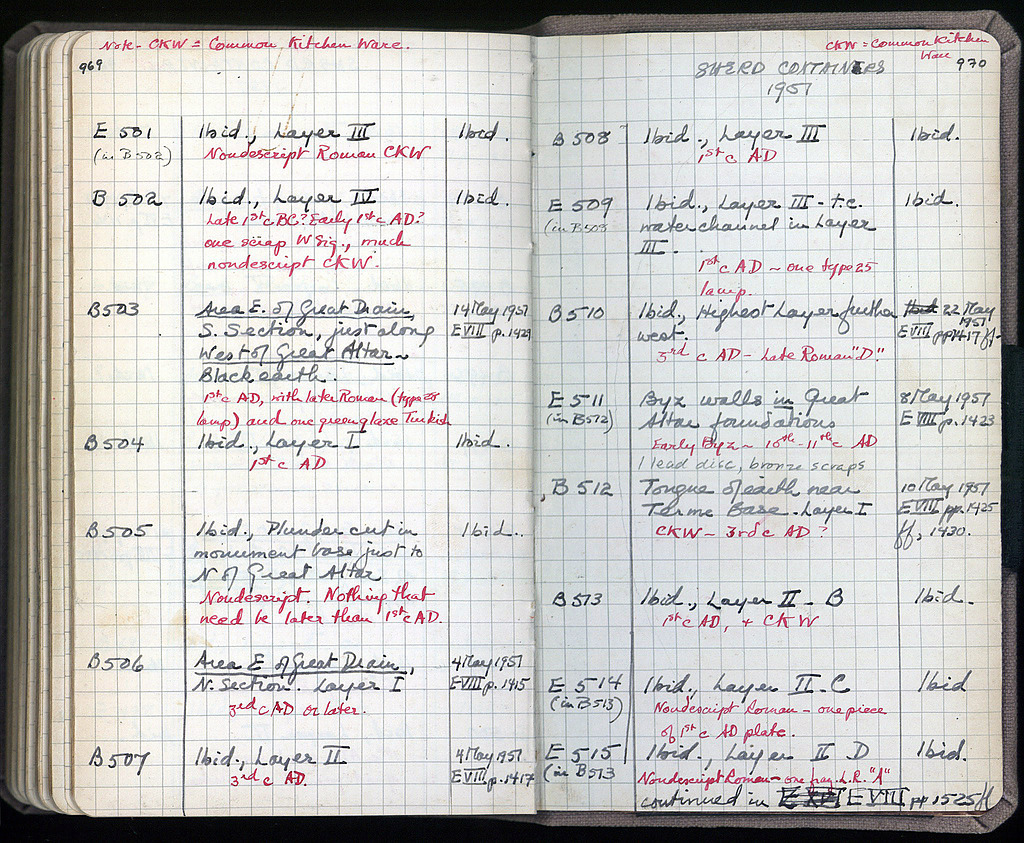 Note - CKW = Common Kitchen Ware.
969
E 501 Ibid., Layer III Ibid.
(in B502) Nondescript Roman CKW
B 502 Ibid., Layer IV Ibid.
Late 1st c BC? Early 1st c AD?
one scrap W Sig., much
nondescript CKW.
B503 Area E. of Great Drain, 14 May 1957
S. Section, just along E VIII p. 1429
West of Great Altar ~
Black earth.
1st c AD, with later Roman (type 28
lamp) and one green glaze Turkish
B504 Ibid., Layer I Ibid.
1st c AD
B505 Ibid., Plunder cut in Ibid..
monument base just to
N of Great Altar
Nondescript. Nothing that
need be later than 1st c AD.
B506 Area E of Great Drain, 4 May 1957
N. Section. Layer I E VIII p. 1415
3rd c AD or later.
B507 Ibid., Layer II 4 May 1957
3rd c AD. E VIII p. 1417
CKW = Common Kitchen
Ware 970
SHERD CONTAINERS
1957
B 508 Ibid., Layer III Ibid.
1st c AD
E 509 Ibid., Layer III - t.c. Ibid.
(in B508 water channel in Layer
III.
1st c AD ~ one type 25
lamp.
B510 Ibid., Highest Layer further Ibid. 22 May
west. 1957
E VIII pp 1417 ff.
3rd c AD - Late Roman "D."
E 511 Byz walls in Great 8 May 1957
(in B512) Altar foundations E VIII p. 1423
Early Byz ~ 10th - 11th c AD
1 lead disc, bronze scraps
B 512 Tongue of earth near 10 May 1957
Terme Base. Layer I E VIII pp. 1425
CKW - 3rd c AD ? ff, 1430.
B513 Ibid., Layer II - B Ibid.
1st c AD, + CKW
E 514 Ibid., Layer II - C Ibid
(in B513) Nondescript Roman - one piece
of 1st c AD plate.
E 515 Ibid., Layer II D Ibid.
(in B513 Nondescript Roman - one frag. L.R. "A"
continued in E VIII pp 1525 ff